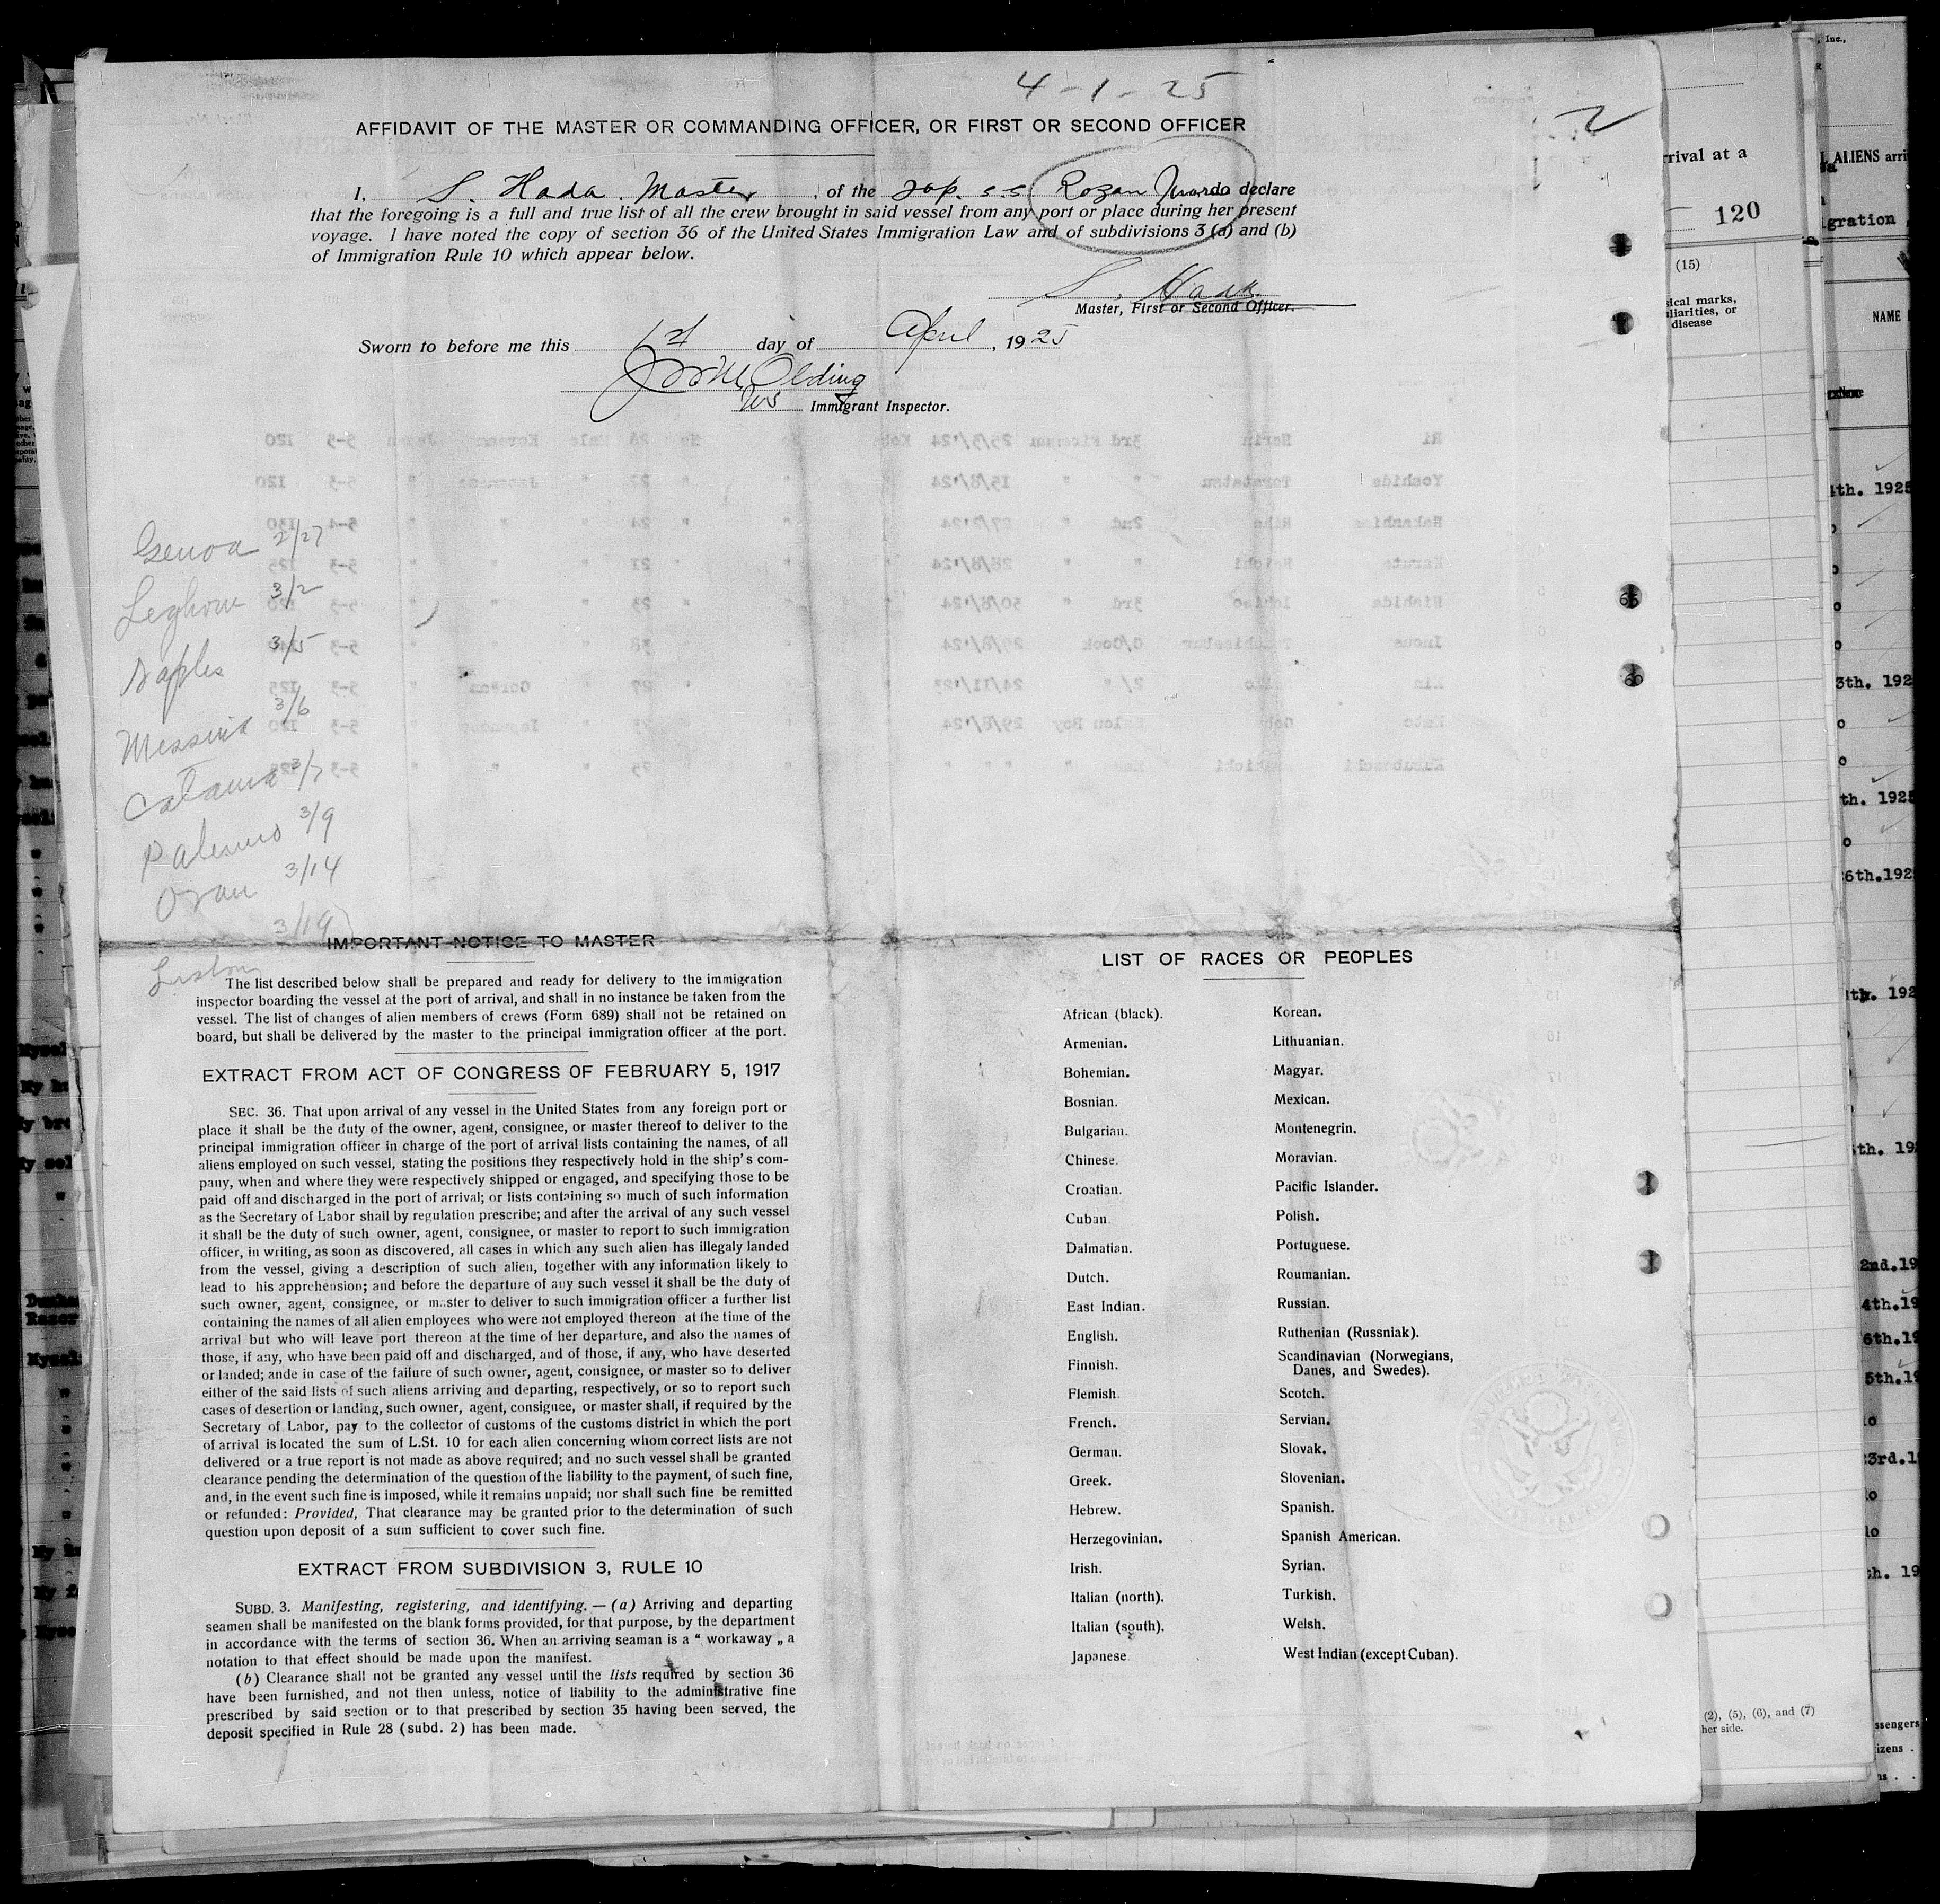 4-1-25
2
AFFIDAVIT OF THE MASTER OR COMMANDING OFFICER, OR FIRST OR SECOND OFFICER
I, S. Hada Master, of the Jap. s.s. Rozan Mardo declare
that the foregoing is a full and true list of all the crew brought in said vessel from any port or place during her present
voyage. I have noted the copy of section 36 of the United States Immigration Law and of subdivisions 3 (a) and (b)
of Immigration Rule 10 which appear below.
S. Hada.
Master, First or Second Officer.
Sworn to before me this 1st day of April, 1925
Olding
Immigrant Inspector.
Genoa 2/27
Leghorn 3/2
Naples 3/5
Messina 3/6
Catania 3/7
Palermo 3/9
Oran 3/14
Lisbon 3/19
IMPORTANT NOTICE TO MASTER
The list described below shall be prepared and ready for delivery to the immigration
inspector boarding the vessel at the port of arrival, and shall in no instance be taken from the
vessel. The list of changes of alien members of crews (Form 689) shall not be retained on
board, but shall be delivered by the master to the principal immigration officer at the port.
EXTRACT FROM ACT OF CONGRESS OF FEBRUARY 5, 1917
SEC. 36. That upon arrival of any vessel in the United States from any foreign port or
place it shall be the duty of the owner, agent, consignee, or master thereof to deliver to the
principal immigration officer in charge of the port of arrival lists containing the names, of all
aliens employed on such vessel, stating the positions they respectively hold in the ship's com-
pany, when and where they were respectively shipped or engaged, and specifying those to be
paid off and discharged in the port of arrival; or lists containing so much of such information
as the Secretary of Labor shall by regulation prescribe; and after the arrival of any such vessel
it shall be the duty of such owner, agent, consignee, or master to report to such immigration
officer, in writing, as soon as discovered, all cases in which any such alien has illegaly landed
from the vessel, giving a description of such alien, together with any information likely to
lead to his apprehension; and before the departure of any such vessel it shall be the duty of
such owner, agent, consignee, or master to deliver to such immigration officer a further list
containing the names of all alien employees who were not employed thereon at the time of the
arrival but who will leave port thereon at the time of her departure, and also the names of
those, if any, who have been paid off and discharged, and of those, if any, who have deserted
or landed; ande in case of the failure of such owner, agent, consignee, or master so to deliver
either of the said lists of such aliens arriving and departing, respectively, or so to report such
cases of desertion or landing, such owner, agent, consignee, or master shall, if required by the
Secretary of Labor, pay to the collector of customs of the customs district in which the port
of arrival is located the sum of L.St. 10 for each alien concerning whom correct lists are not
delivered or a true report is not made as above required; and no such vessel shall be granted
clearance pending the determination of the question of the liability to the payment, of such fine,
and, in the event such fine is imposed, while it remains unpaid; nor shall such fine be remitted
or refunded: Provided, That clearance may be granted prior to the determination of such
question upon deposit of a sum sufficient to cover such fine.
EXTRACT FROM SUBDIVISION 3, RULE 10
SUBD. 3. Manifesting, registering, and identifying. — (a) Arriving and departing
seamen shall be manifested on the blank forms provided, for that purpose, by the department
in accordance with the terms of section 36. When an arriving seaman is a “ workaway „ a
notation to that effect should be made upon the manifest.
(b) Clearance shall not be granted any vessel until the lists required by section 36
have been furnished, and not then unless, notice of liability to the administrative fine
prescribed by said section or to that prescribed by section 35 having been served, the
deposit specified in Rule 28 (subd. 2) has been made.
LIST OF RACES OR PEOPLES
African (black).
Armenian.
Bohemian.
Bosnian.
Bulgarian.
Chinese.
Croatian.
Cuban.
Dalmatian.
Dutch.
East Indian.
English.
Finnish.
Flemish.
French.
German.
Greek.
Hebrew.
Herzegovinian.
Irish.
Italian (north).
Italian (south).
Japanese.
Korean.
Lithuanian.
Magyar.
Mexican.
Montenegrin.
Moravian.
Pacific Islander.
Polish.
Portuguese.
Roumanian.
Russian.
Ruthenian (Russniak).
Scandinavian (Norwegians,
Danes, and Swedes).
Scotch.
Servian.
Slovak.
Slovenian.
Spanish.
Spanish American.
Syrian.
Turkish.
Welsh.
West Indian (except Cuban).
rrival at a
120
(15)
sical marks,
uliarities, or
disease
(2), (5), (6), and (7)
her side.
, Inc.,
ALIENS arri
igration
NAME